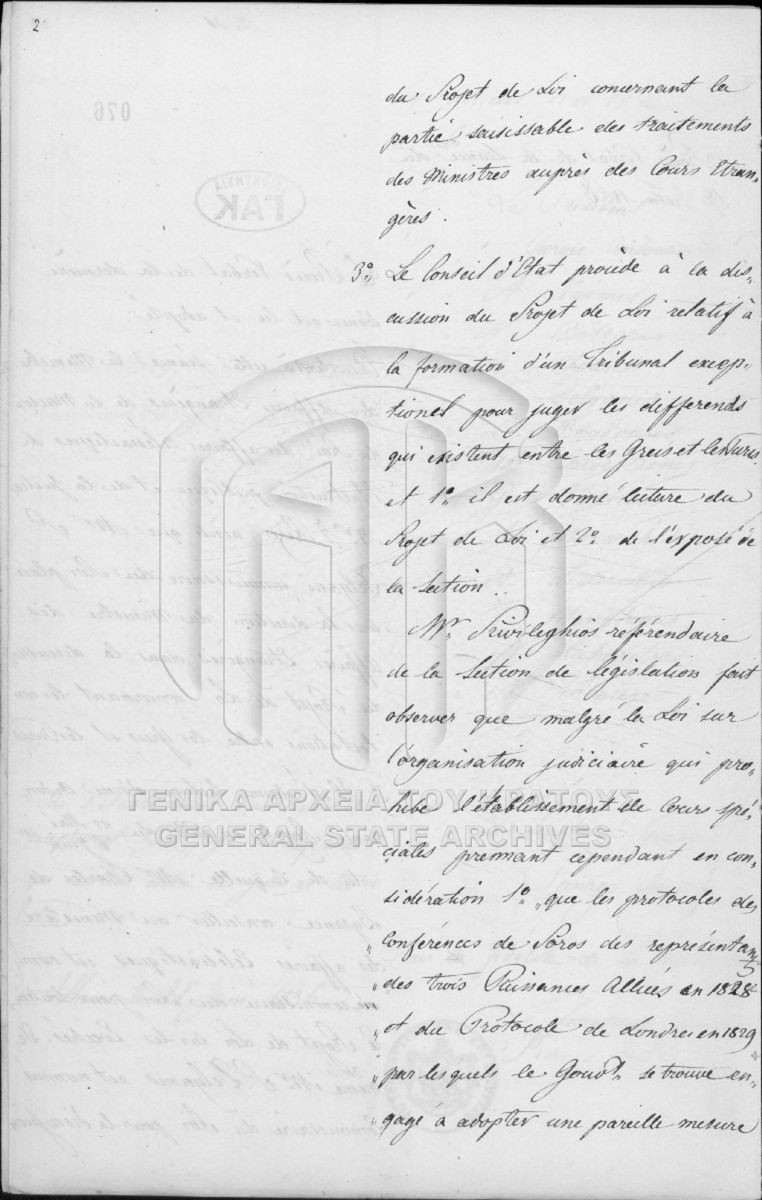 2
076
du Projet de Loi concernant la
partie saisissable des traitements
des Ministres auprès des Cours Etran-
gères.
3º Le Conseil d'Etat procède à la dis-
cussion du Projet de Loi relatif à
la formation d'un Tribunal excep-
tionel pour juger les differends
qui existent entre les Grecs et les Turcs,
et 1º il est donné lecture du
Projet de Loi et 2º de l'exposé de
la Section.
Mr. Privileghios référendaire
de la Section de législation fait
observer que malgré la Loi sur
l'organisation judiciaire qui pro-
hibe l'établissement de Cours spé-
ciales prennant cependant en con-
sidération 1º „que les protocoles des
„conférences de Poros des représentants
„des trois Puissances Alliées en 1828
„et du Protocole de Londres en 1829
„par lesquels le Gouvt. se trouve en-
„gagé à adopter une pareille mesure
ΓΑΚ
ΓΕΝΙΚΑ ΑΡΧΕΙΑ ΤΟΥ ΚΡΑΤΟΥΣ
GENERAL STATE ARCHIVES